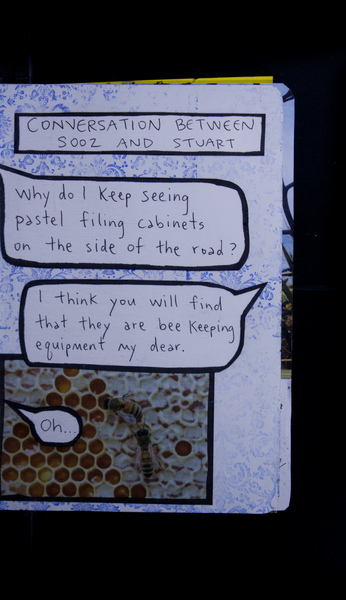 CONVERSATION BETWEEN
SOOZ AND STUART
Why do I keep seeing
pastel filing cabinets
on the side of the road?
I think you will find
that they are bee keeping
equipment my dear.
Oh...